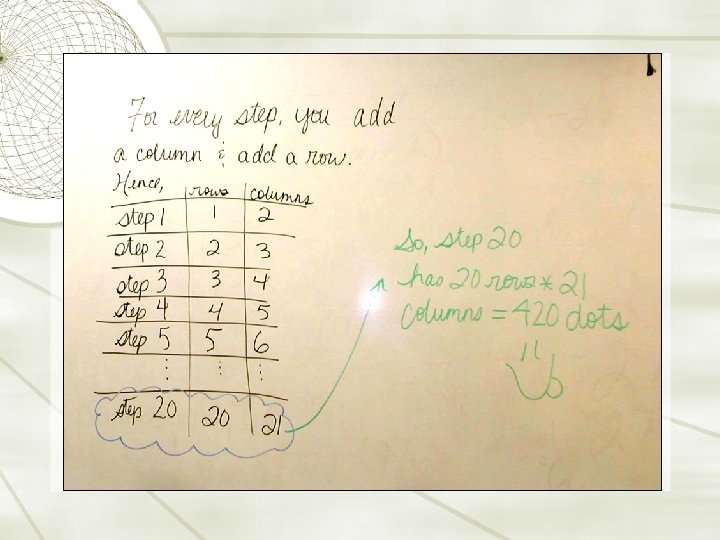 For every step, you add
a column & add a row.
Hence, rows columns
step 1 1 2
step 2 2 3
step 3 3 4
step 4 4 5
step 5 5 6
⋮ ⋮ ⋮
step 20 20 21
So, step 20
has 20 rows * 21
columns = 420 dots